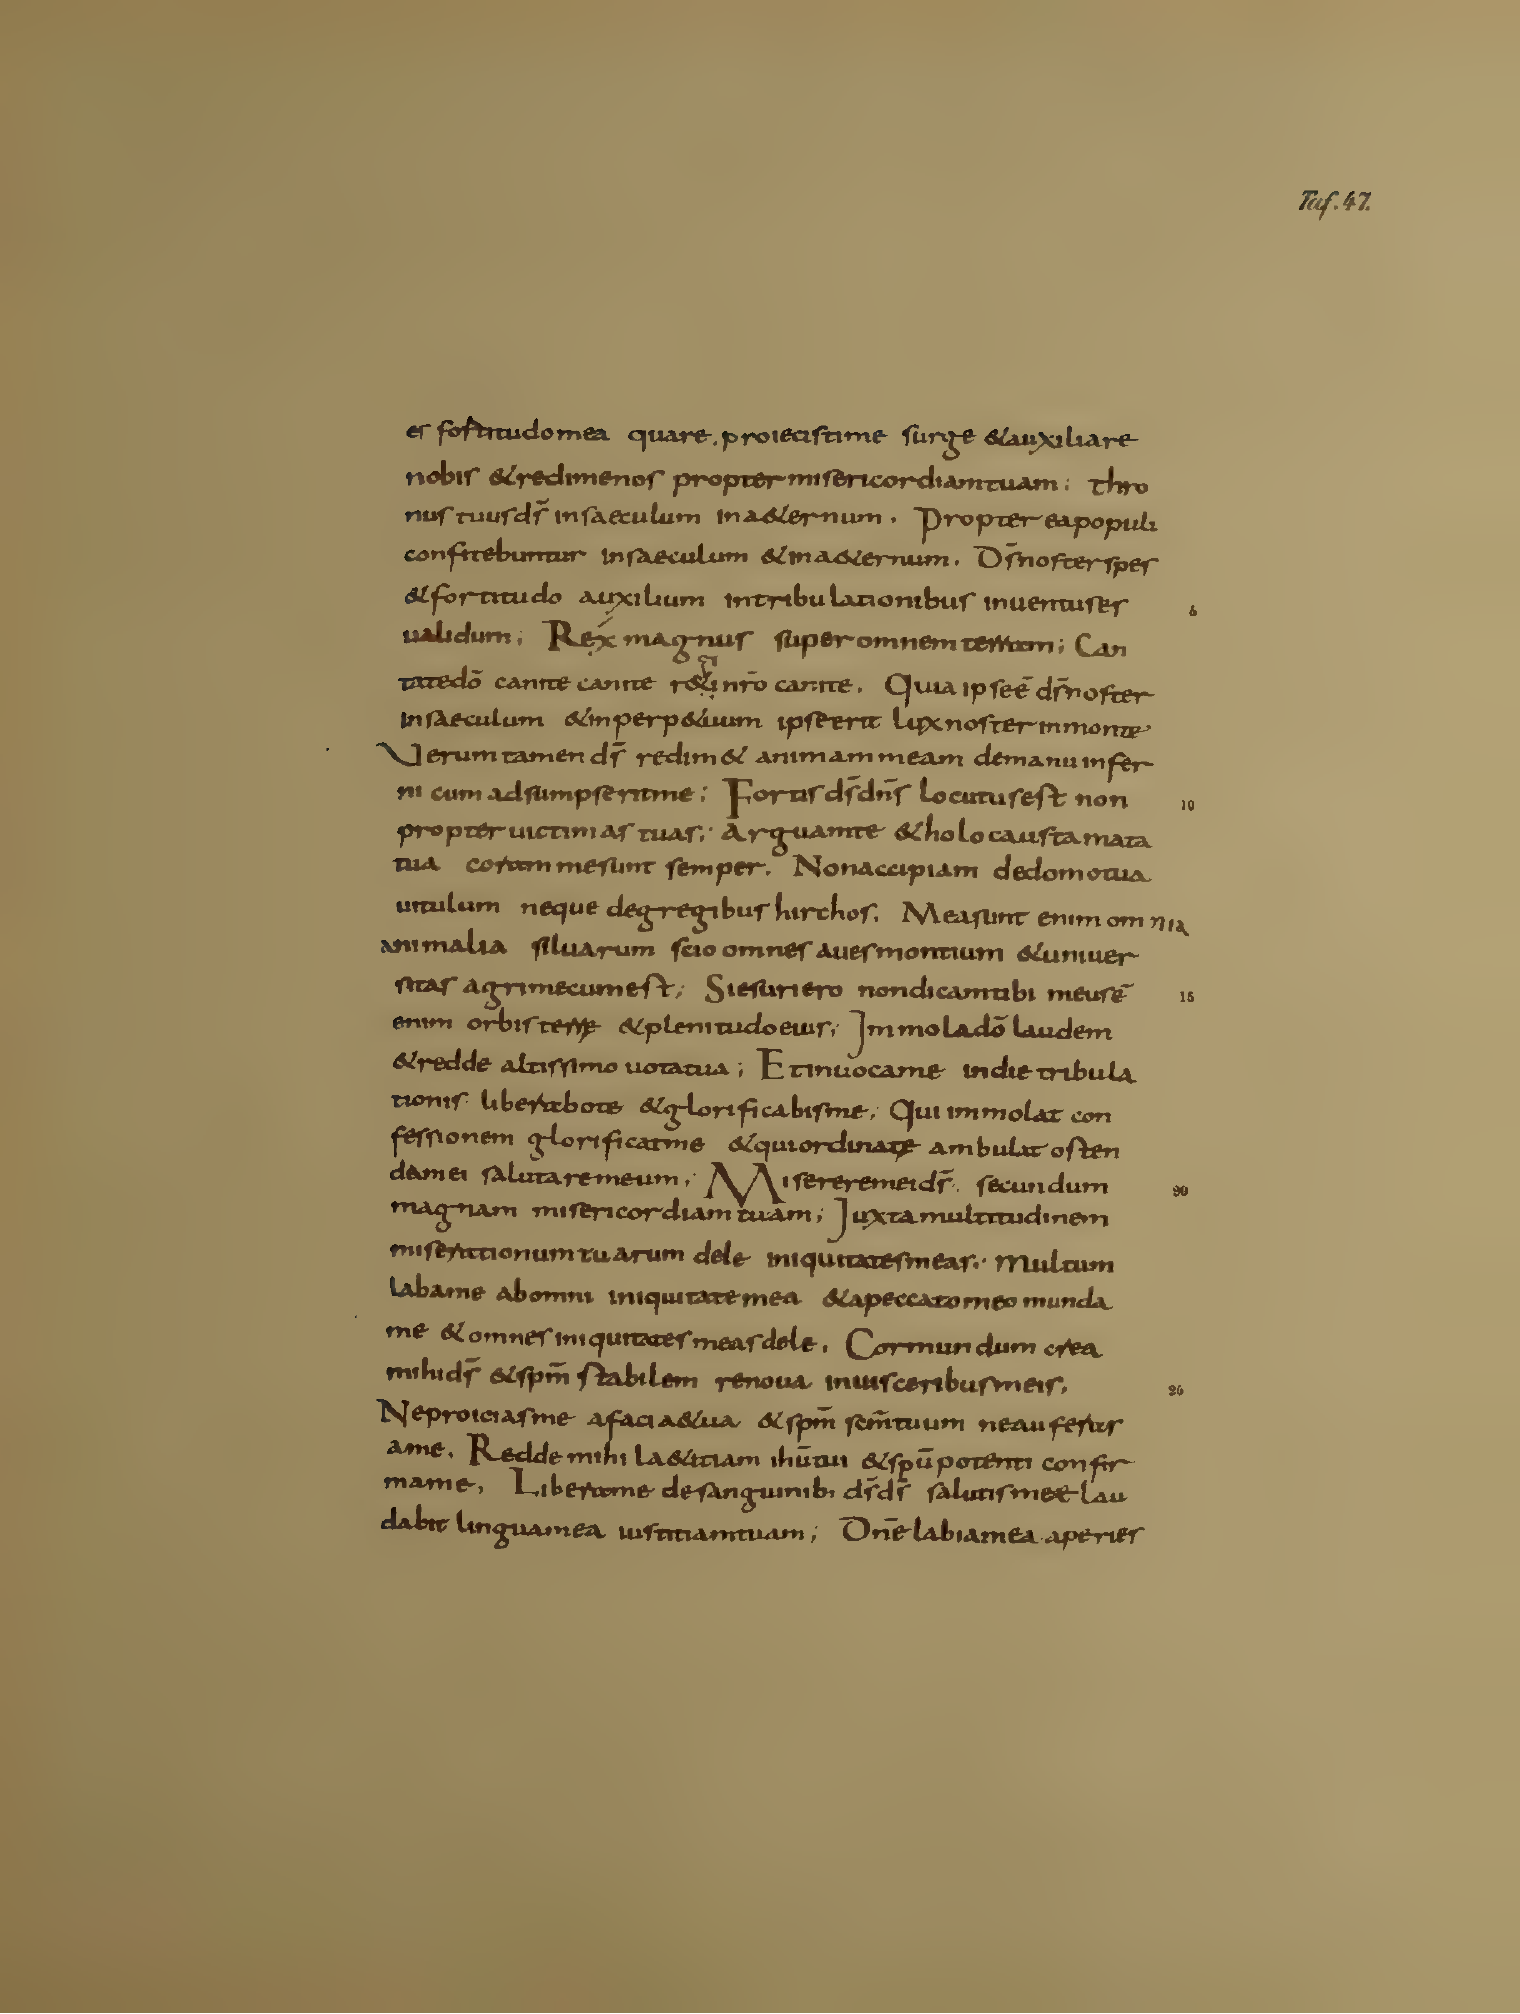 Taf. 47.
es fortitudo mea quare . proiecisti me surge & auxiliare
nobis & redime nos propter misericordiam tuam : thro
nus tuus d̄s in saeculum in a&ernum . Propterea populi
confitebuntur in saeculum & in a&ernum . D̄s noster spes
& fortitudo auxilium in tribulationibus inuentus es 5
ualidum ; Rex magnus super omnem terram ; Can
tate dō canite canite r&gi nr̄o canite . Quia ipse ē d̄s noster
in saeculum & in perp&uum ipse erit lux noster in monte
Verum tamen d̄s redim& animam meam de manu infer
ni cum adsumpserit me ; Fortis d̄s dn̄s locutus est non 10
propter uictimas tuas ; Arguam te & holocausta mata
tua coram me sunt semper . Non accipiam de domo tua
uitulum neque de gregibus hirchos . Mea sunt enim omnia
animalia siluarum scio omnes aues montium & uniuer
sitas agri mecum est ; Si esuriero non dicam tibi meus ē 15
enim orbis terrę & plenitudo eius ; Immola dō laudem
& redde altissimo uota tua ; Et inuoca me in die tribula
tionis liberabo te & glorificabis me ; Qui immolat con
fessionem glorificat me & qui ordinate ambulat osten
dam ei salutare meum ; Miserere mei d̄s . secundum 20
magnam misericordiam tuam ; Juxta multitudinem
miserationum tuarum dele iniquitates meas . Multum
laba me ab omni iniquitate mea & a peccato meo munda
me & omnes iniquitates meas dele . Cor mundum crea
mihi d̄s & sp̄m stabilem renoua in uisceribus meis . 25
Ne proicias me a facia&ua & sp̄m sc̄m tuum ne auferas
a me . Redde mihi la&itiam ihū tui & spū potenti confir
ma me . Libera me de sanguinib; d̄s d̄s salutis meę lau
dabit lingua mea iustitiam tuam ; Dn̄e labia mea aperies